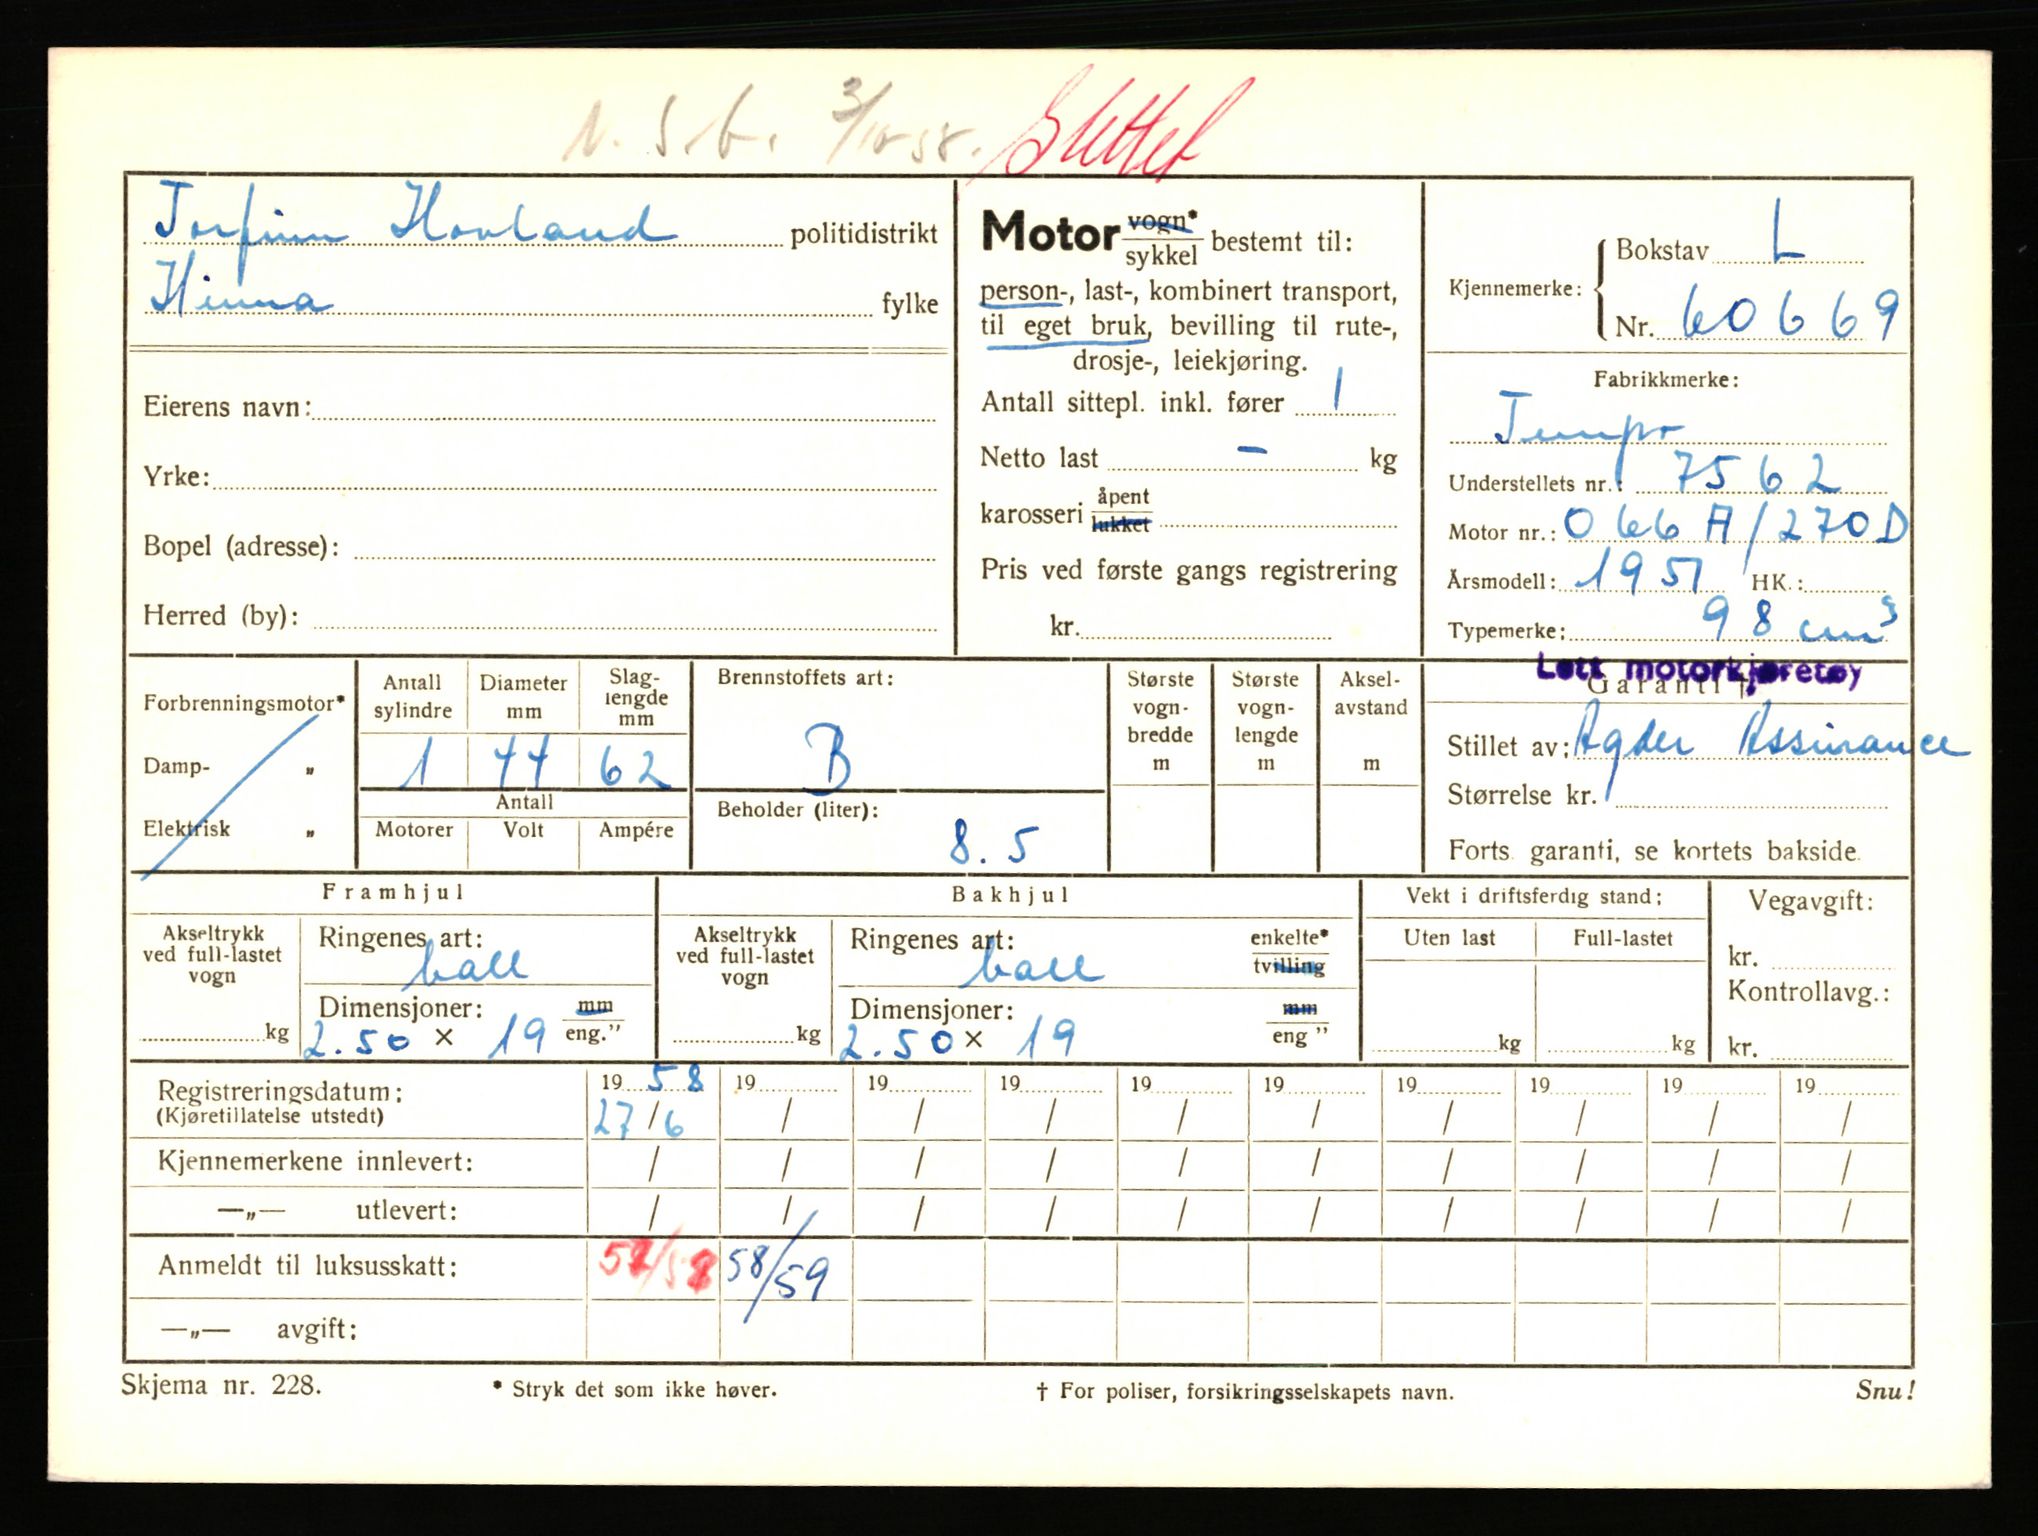 N. S. b. 3/10 58. Slettet
Torfinn Hovland politidistrikt
Hinna fylke
Eierens navn:
Yrke:
Bopel (adresse):
Herred (by):
Motor vogn*
sykkel bestemt til:
person-, last-, kombinert transport,
til eget bruk, bevilling til rute-,
drosje-, leiekjøring.
Antall sittepl. inkl. fører 1
Netto last – kg
karosseri åpent
lukket
Pris ved første gangs registrering
kr.
Kjennemerke: Bokstav L
Nr. 60669
Fabrikkmerke:
Tempo
Understellets nr.: 7562
Motor nr.: 066 A/270D
Årsmodell: 1951 HK.:
Typemerke: 98 cm³
Lett motorkjøretøy
Garanti †
Stillet av: Agder Assurance
Størrelse kr.
Forts. garanti, se kortets bakside.
Forbrenningsmotor*
Damp- „
Elektrisk „
Antall sylindre
Diameter mm
Slaglengde mm
1 44 62
Antall
Motorer Volt Ampére
Brennstoffets art:
B
Beholder (liter):
8.5
Største vogn-bredde m
Største vogn-lengde m
Aksel-avstand m
Framhjul
Akseltrykk
ved full-lastet
vogn
kg
Ringenes art:
ball
Dimensjoner: mm
2.50 × 19 eng."
Bakhjul
Akseltrykk
ved full-lastet
vogn
kg
Ringenes art: enkelte*
ball tvilling
Dimensjoner: mm
2.50 × 19 eng "
Vekt i driftsferdig stand:
Uten last Full-lastet
kg kg
Vegavgift:
kr.
Kontrollavg.:
kr.
Registreringsdatum: 19 58 19 19 19 19 19 19 19 19 19
(Kjøretillatelse utstedt) 27/6 / / / / / / / / /
Kjennemerkene innlevert: / / / / / / / / / /
—„— utlevert: / / / / / / / / / /
Anmeldt til luksusskatt: 58/59
—„— avgift:
Skjema nr. 228. * Stryk det som ikke høver. † For poliser, forsikringsselskapets navn. Snu!